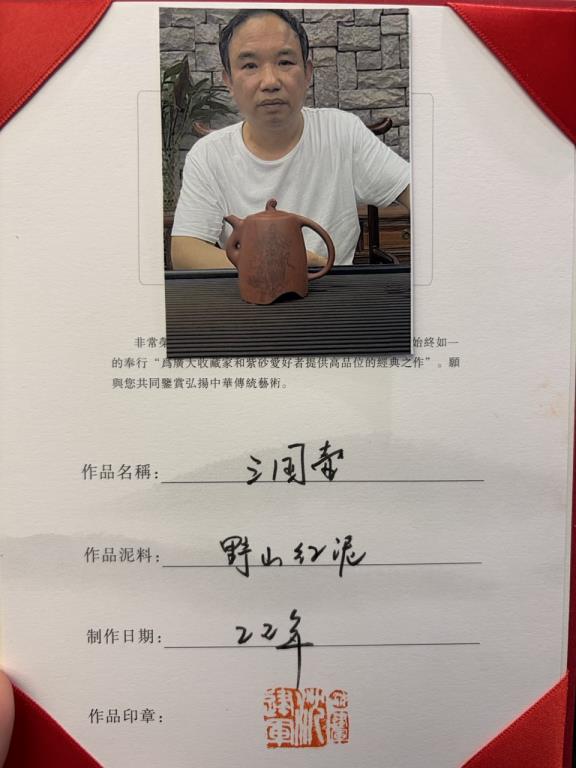 非常榮 始終如一
的奉行“爲廣大收藏家和紫砂愛好者提供高品位的經典之作”。願
與您共同鑒賞弘揚中華傳統藝術。
作品名稱：三国壶
作品泥料：野山红泥
制作日期：22年
作品印章：